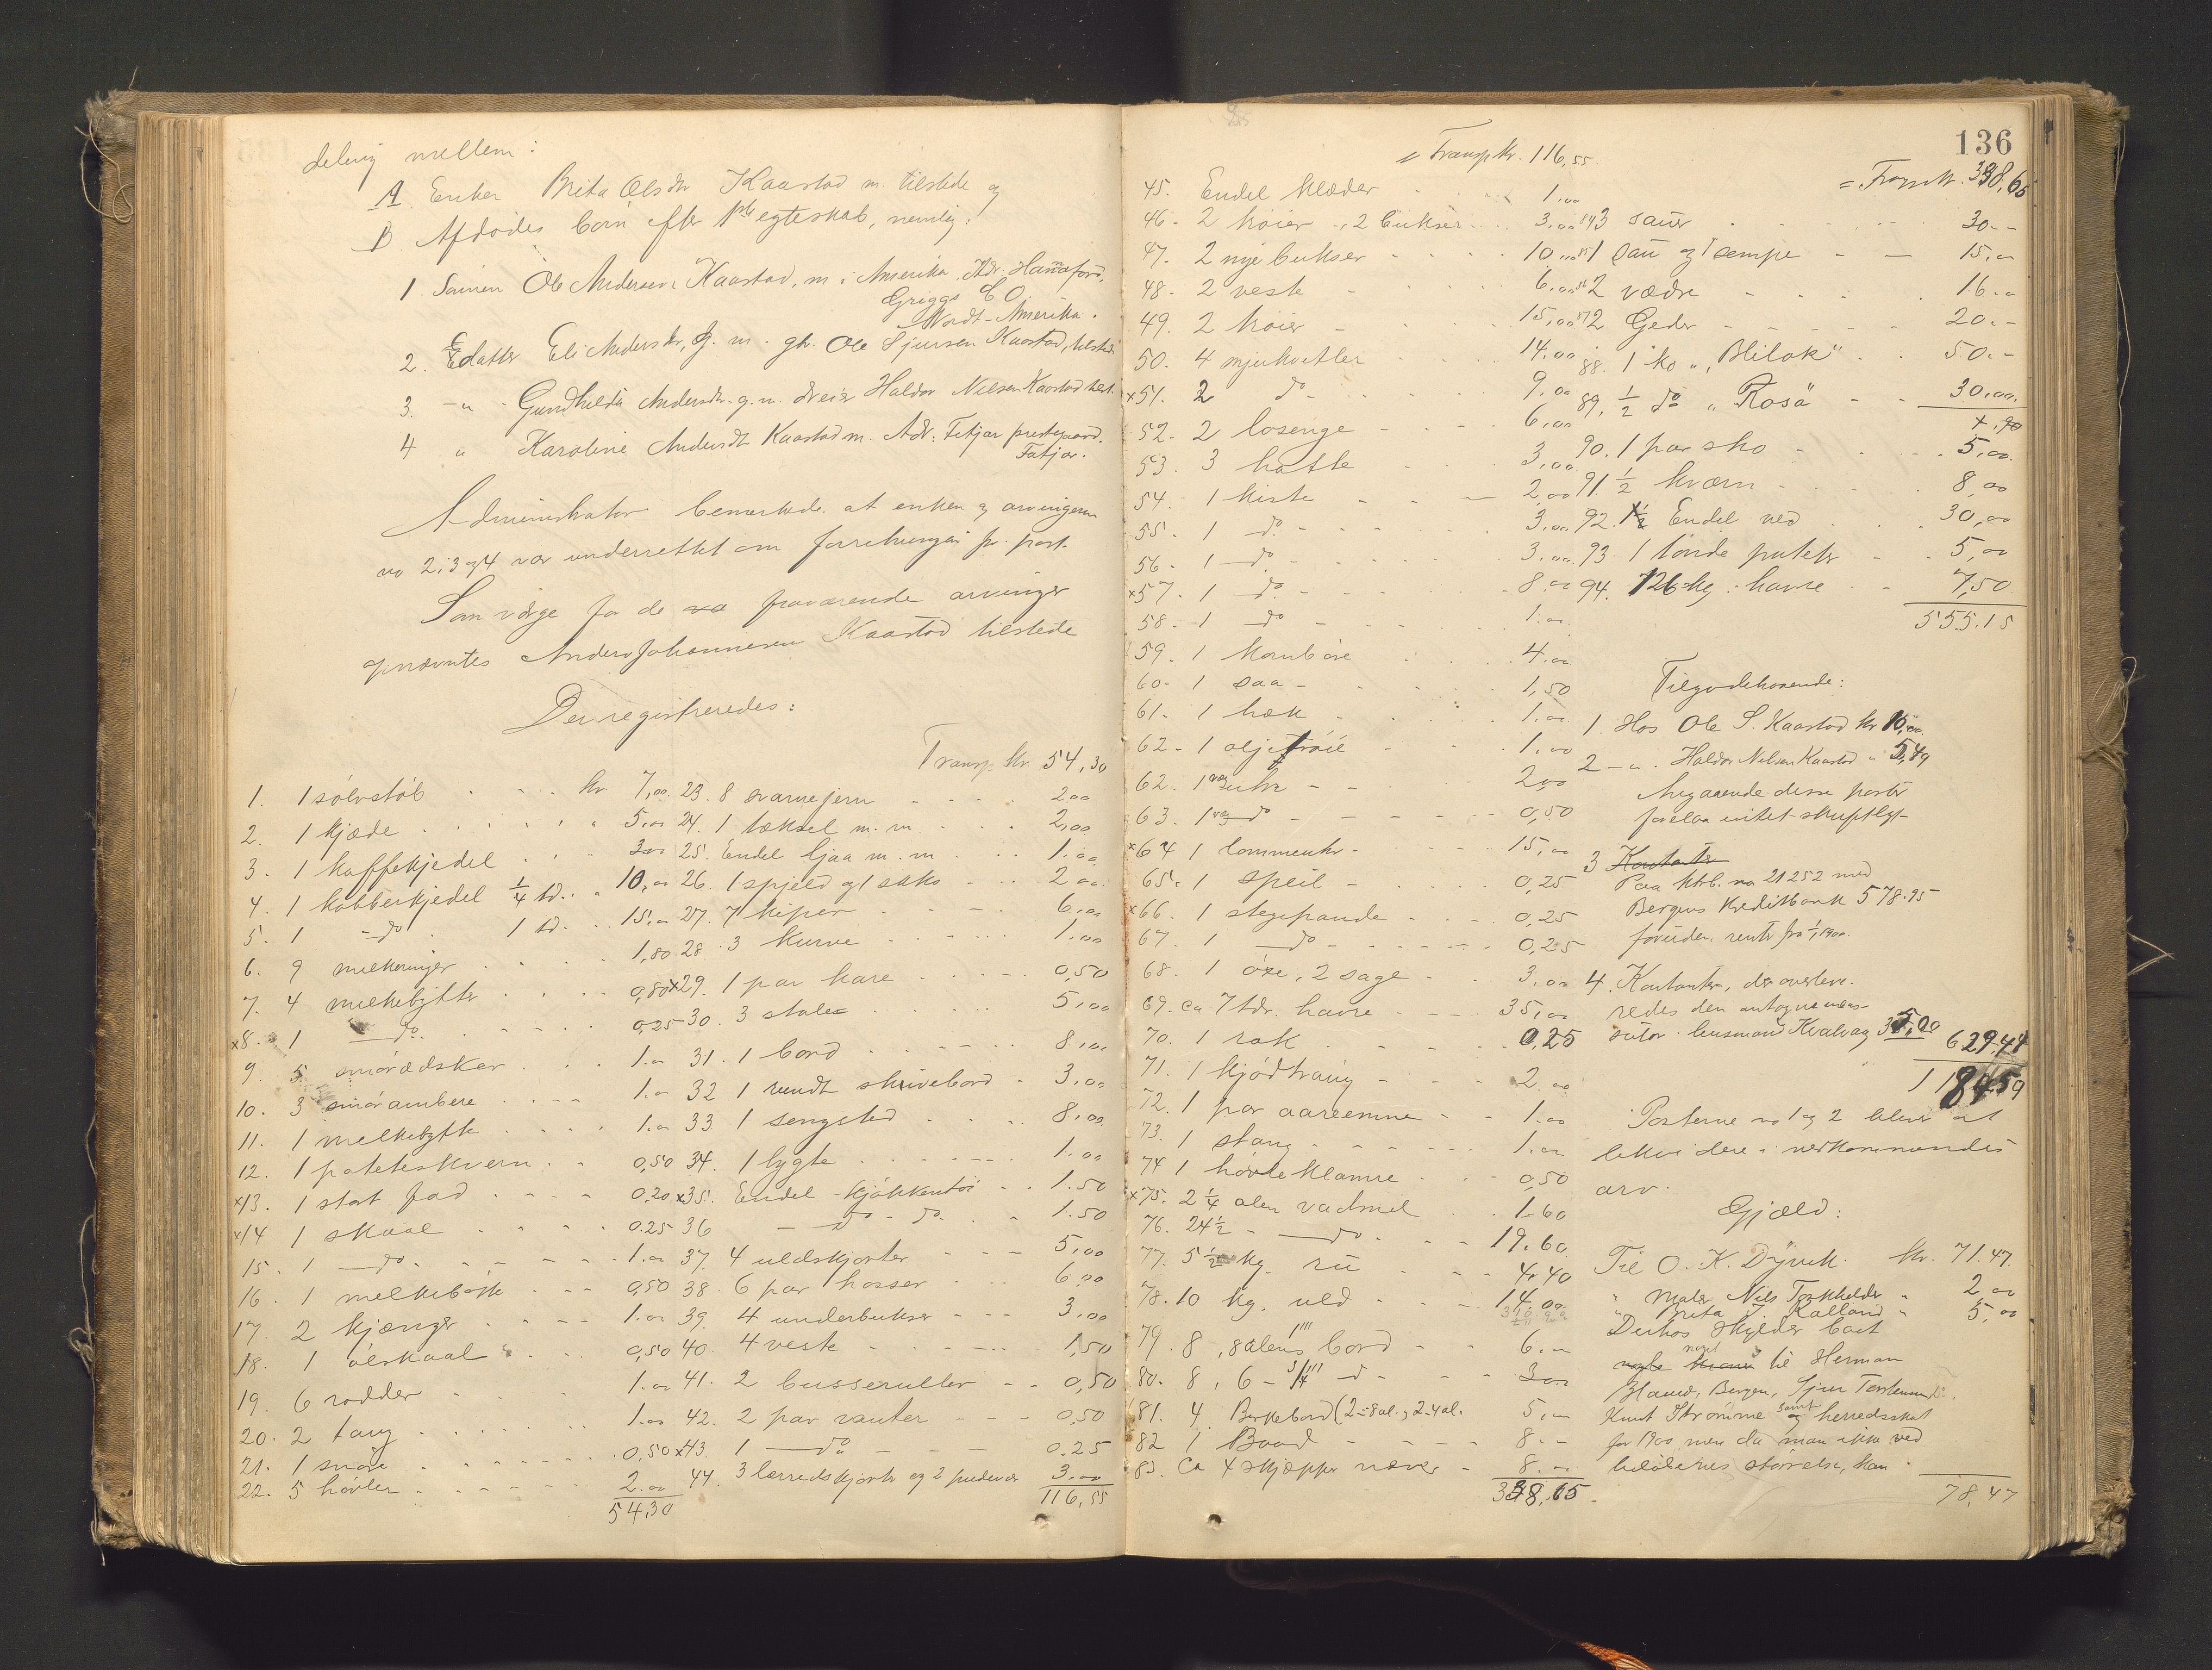 deling mellem:
A. Enken Brita Olsdtr Kaarstad m. tilstede og
B Afdödes börn efter 1ste egteskab, nemlig:
1. Sönnen Ole Andersen Kaarstad, m. i Amerika. Adr. Hannaford,
Griggs C O.
Nordt-Amerika.
2. Datter Eli Andersdtr, g. m. gbr. Ole Sjursen Kaarstad, tilstede
3. -"- Gundhilda Andersdtr. g. m. Haldor Nilsen Kaarstad tilst.
4 " Karoline Andersdt Kaarstad m. Adr: Fitjar prestegaard.
Fitjar.
Administrator bemerkede at enken og arvingerne
no 2, 3 og 4 var underrettet om forretningen pr. post.
Som værge for de fraværende arvinger
opnævntes Anders Johannesen Kaarstad tilstede
Der registreredes:
1. 1 sölvstöb kr 7,00
2. 1 kjæde " 5,00
3. 1 kaffekjedel " 3,00
4. 1 kobberkjedel 1/4 td. " 10,00
5. 1 -do- 1 td. 15,00
6. 9 melkeringer 1,80
7. 4 melkebytter 0,80
x8. 1 do. 0,25
9. 5 smörædsker 1.00
10. 3 smörambere 1.00
11. 1 melkebytte 1.00
12. 1 poteteskvern 0,50
x13. 1 stort fad 0,20
x14 1 skaal 0.25
15. 1 do. 1.00
16. 1 melkebötte 0,50
17. 2 kjænger 1.00
18. 1 ölskaal 0,50
19. 6 1.00
20. 2 1.00
21. 1 0,50
22. 5 hövler 2.00
54,30
Transp. kr 54,30
23. 8 svarvejern 2,00
24. 1 tæksel m. m 2,00
25. Endel ljaa m. m 1.00
26. 1 spjeld og 1 saks 2,00
27. 7 kiper 6,00
28. 3 kurve 1,00
x29. 1 par kare 0,50
30. 3 stole 5,00
31. 1 bord 8,00
32 1 rundt skrivebord 3,00
33 1 sengsted 8,00
34. 1 lygte 1.00
x35. Endel kjökkentöi 1.50
36 do - do. 1.50
37. 4 uldskjorter 5,00
38. 6 par hosser 6,00
39. 4 underbukser 3,00
40. 4 veste 1,50
41. 2 busseruller 0,50
42. 2 par vanter 0,50
x43 1 do 0.25
44. 3 lærredskjorter og 2 3.00
116,55
136
= Transp kr. 116,55.
45. Endel klæder 1.00
46. 2 tröier, 2 bukser 3,00
47. 2 nye bukser 10,00
48. 2 veste 6,00
49. 2 tröier 15,00
50. 4 14.00
x51. 2 do 9,00
52. 2 6,00
53. 3 hatte 3,00
54. 1 kiste 2,00
55. 1 do 3,00
56. 1 do 3,00
x57. 1 do. 8,00
58. 1 do 1.00
59. 1 kornböre 4.00
60. 1 saa 1,50
61. 1 1.00
62. 1 oljetröie 1,00
62. 1 2,00
63. 1 do 0,50
x64 1 lommeuhr. 15,00
65. 1 speil 0,25
x66. 1 stegepande 0,25
67. 1 do 0,25
68. 1 öxe, 2 sage 3,00
69. ca 7 tdr. havre 35,00
70. 1 rok 0,25
71. 1 kjödtraug 2,00
72. 1 par aareemne 1.00
73. 1 stang 1,00
74 1 hövleklamre 0,50
x75. 2 1/4 alen vadmel 1.60
76. 24 1/2 - do. 19.60
77. 5 1/2 kg. 4,40
78. 10 kg. uld 14.00
79. 8, 8 alens 1''' bord 6.00
80. 8, 6 - 3/4''' d. 3,00
81. 4 Birkebord (2-8 al., 2-4 al. 5,00
82 1 Baad 8.-
83. Ca 4 skjæpper 8.00
338,65
= Transp kr. 338,65
84 3 sauer 30.-
85 1 sau og 1 15,00
86 2 vædre 16.00
87 2 Geder 20.-
88. 1 ko "Blilok" 50.-
89. 1/2 do "Rosa" 30,00.
90. 1 par sko 5,00.
91. 1/2 kværn 8,00
92. Endel ved 30,00
93. 1 tönde poteter 5,00
94. 126 kg. havre 7,50
555.15
Tilgodehavende:
1. Hos Ole S. Kaarstad kr 10,00.
2 -"- Haldor Nilsen Kaarstad " 5,49
Angaaende disse poster
forelaa intet skriftlygt
3 Kontanter
Paa ktrb. no 21252 med
Bergens Kreditbank 578.95
foruden renter fra 1/1 1900.
4. Kontanter, der overleve-
redes den
lensmand Kvalvaag 35,00
629,44
1184,59
Posterne no 1 og 2 bliver at
likvidere i vedkommendes
arv.
Gjæld:
Til O. K. Dyvik. kr. 71.47.
" Maler Nils " 2,00
" Brita J. Kalland " 5,00
Derhos skylder boet
noget til Herman
Bergen, Sjur
Knut Strömme samt herredsskat
for 1900, men da man ikke ved
belöbenes störrelse, kan
78,47